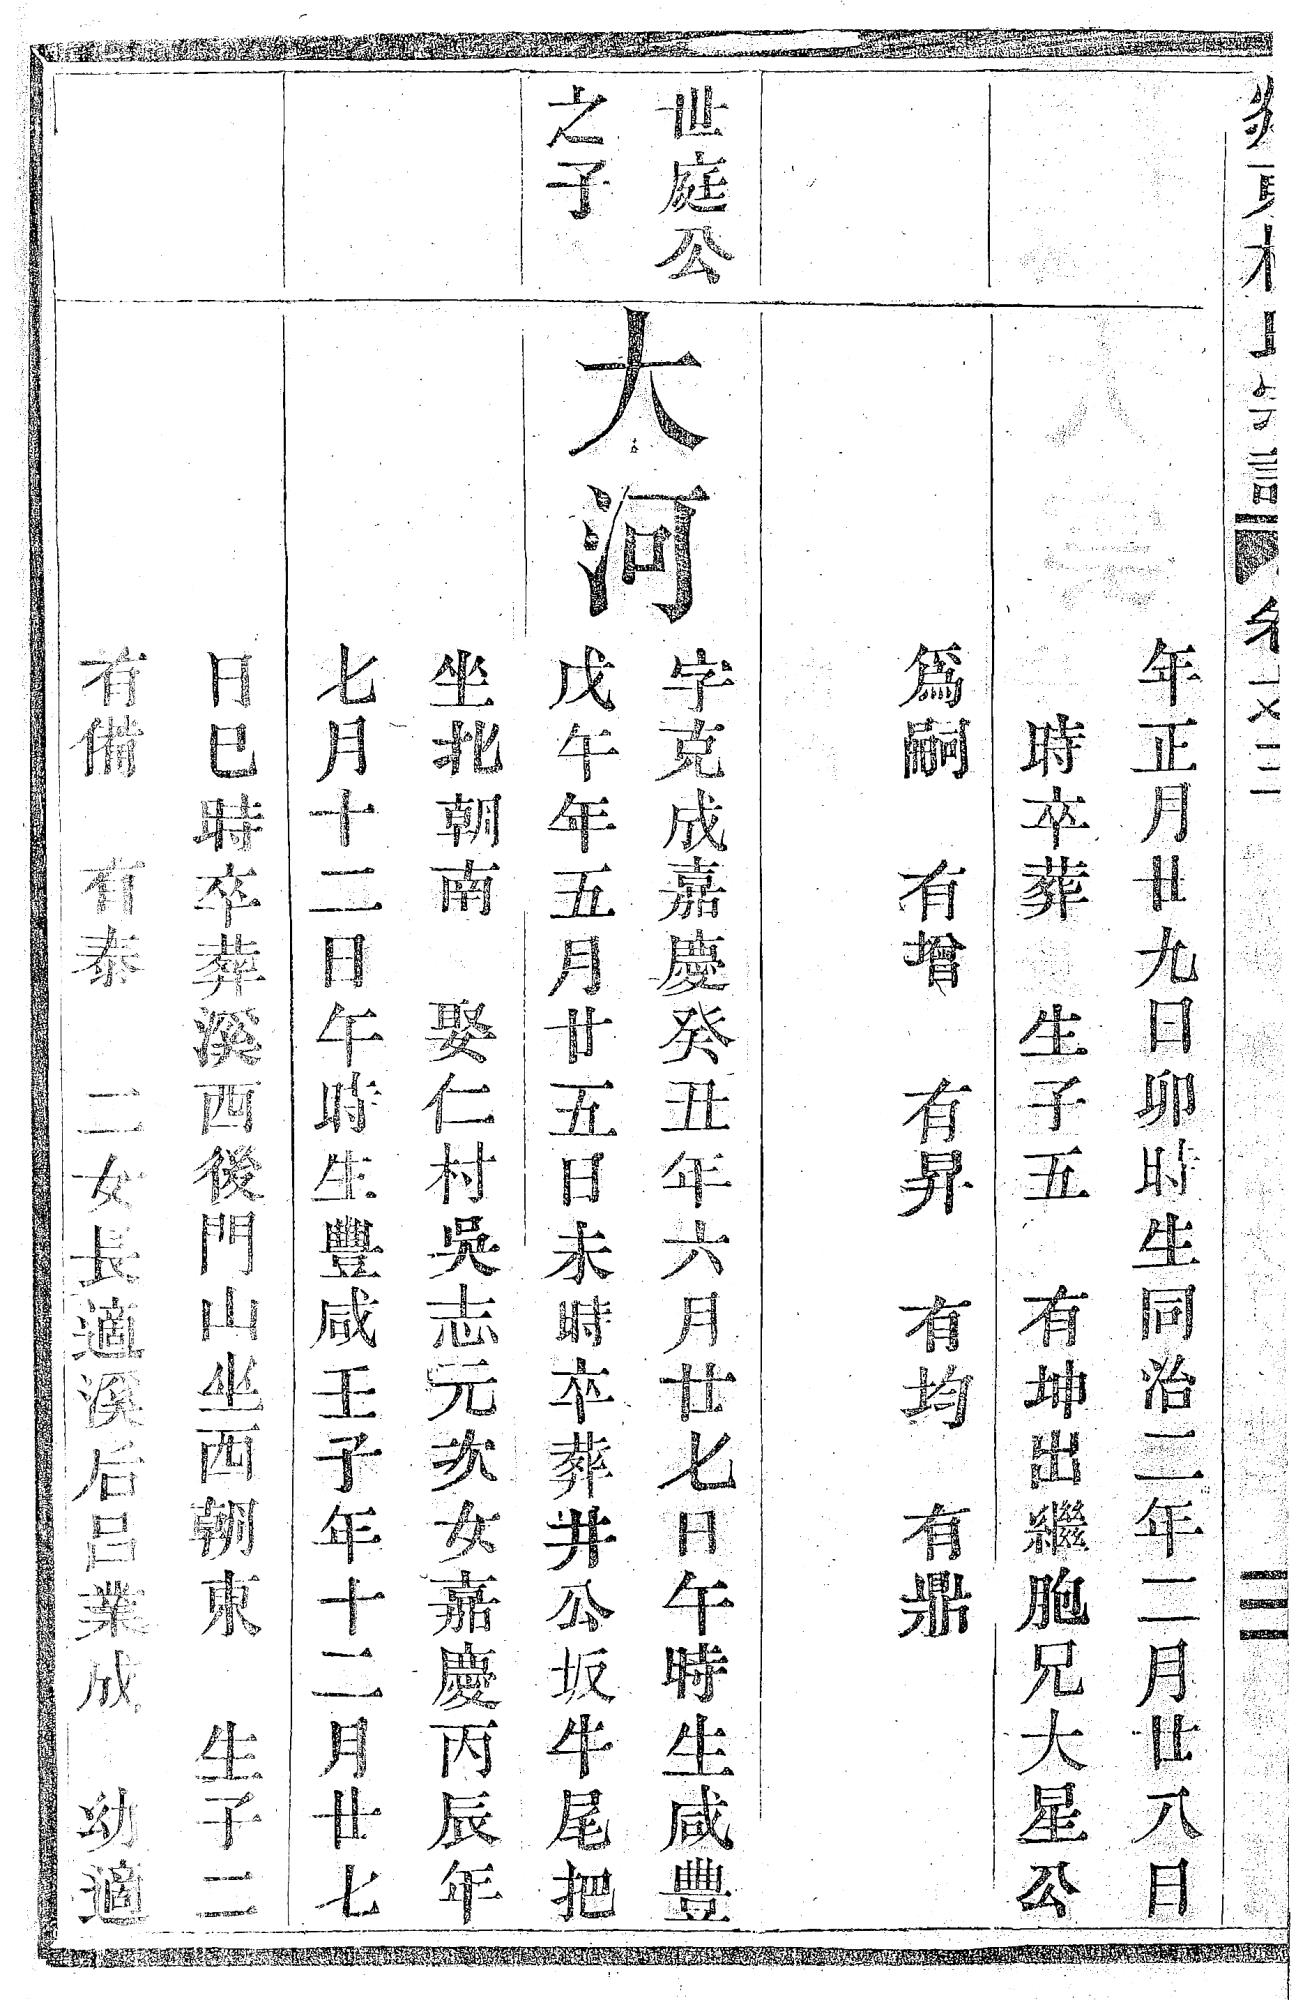 年正月廿九日卯時生同治二年二月廿八日
時卒葬　生子五　有坤出繼胞兄大星公
爲嗣　有增　有昇　有均　有鼎
世庭公
之子
大河
字克成嘉慶癸丑年六月廿七日午時生咸豐
戊午年五月廿五日未時卒葬井公坂牛尾把
坐北朝南　娶仁村吳志元次女嘉慶丙辰年
七月十二日午時生豐咸壬子年十二月廿七
日巳時卒葬溪西後門山坐西朝東　生子二
有備　有泰　二女長適溪后呂業成　幼適